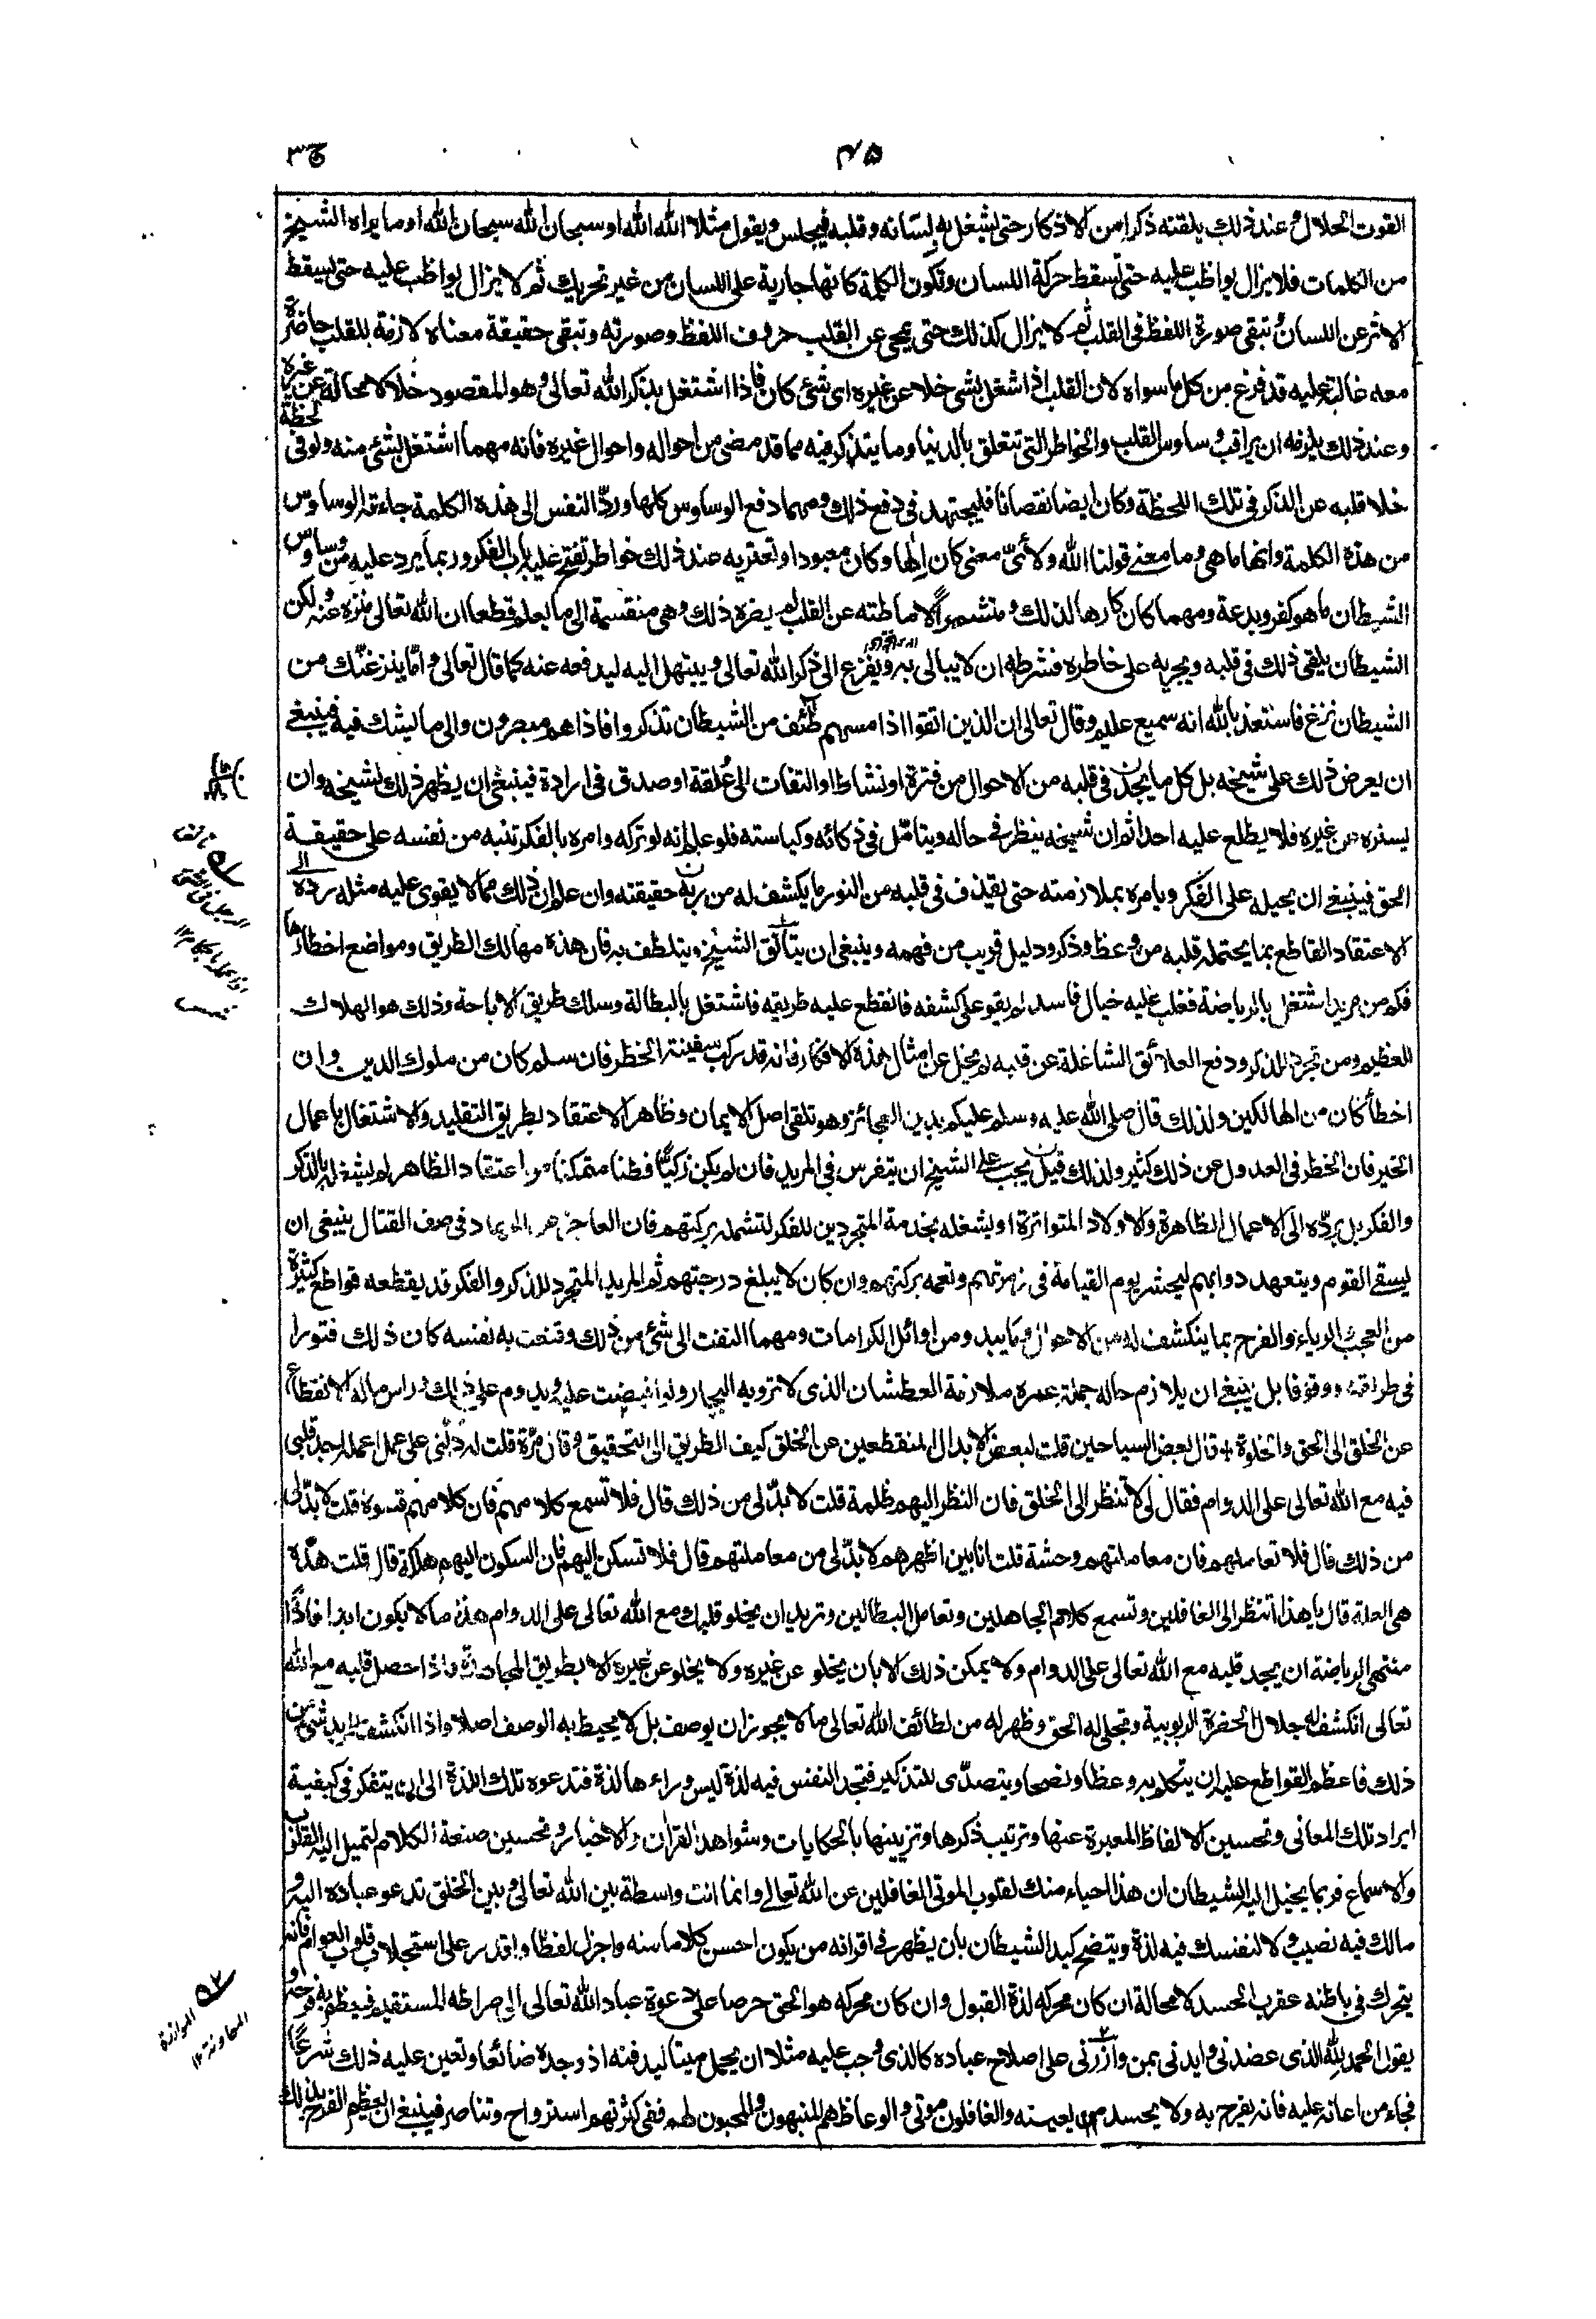 ٤٥
ج٣
القوت الحلال وعند ذلك يلقنه ذكرا من الاذكار حتى يشغل به لسانه وقلبه فيجلس ويقول مثلا الله الله او سبحان الله سبحان الله او ما يراه الشيخ
من الكلمات فلا يزال يواظب عليه حتى تسقط حركة اللسان وتكون الكلمة كانها جارية على اللسان من غير تحريك ثم لا يزال يواظب عليه حتى يسقط
الاثر عن اللسان وتبقى صورة اللفظ فى القلب ثم لا يزال كذلك حتى يمحى عن القلب حروف اللفظ وصورته وتبقى حقيقة معناه لازمة للقلب حاضرة
معه غالبة عليه قد فرغ من كل ما سواه لان القلب اذا شغل بشئ خلا عن غيره اى شئ كان فاذا اشتغل بذكر الله تعالى وهو المقصود خلا لا محالة عن غيره
وعند ذلك يلزمه ان يراقب وساوس القلب والخواطر التى تتعلق بالدنيا وما يتذكر فيه مما قد مضى من احواله واحوال غيره فانه مهما اشتغل بشئ منه ولو فى لحظة
خلا قلبه عن الذكر فى تلك اللحظة وكان ايضا نقصانا فليجتهد فى دفع ذلك ومهما دفع الوساوس كلها وردّ النفس الى هذه الكلمة جاءته الوساوس
من هذه الكلمة وانها ما هى وما معنى قولنا الله ولأىّ معنى كان إلٰها وكان معبودا وتعتريه عند ذلك خواطر تفتح عليه باب الفكر وربما يرد عليه من وساوس
الشيطان ما هو كفر وبدعة ومهما كان كارها لذلك ومتشمرًا لاماطته عن القلب لم يضره ذلك وهى منقسمة الى ما يعلم قطعا ان الله تعالى منزه عنه ولكن
الشيطان يلقى ذلك فى قلبه ويجريه على خاطره فشرطه ان لا يبالى به ويفزع الى ذكر الله تعالى ويبتهل اليه ليدفعه عنه كما قال تعالى وامّا ينزغنّك من
الشيطان نزغ فاستعذ بالله انه سميع عليم وقال تعالى ان الذين اتقوا اذا مسهم طائف من الشيطان تذكروا فاذا هم مبصرون والى ما يشك فيه فينبغى
ان يعرض ذلك على شيخه بل كل ما يجد فى قلبه من الاحوال من فترة او نشاط او التفات الى عُلقة او صدق فى ارادة فينبغى ان يظهر ذلك لشيخه وان
يستره من غيره فلا يطلع عليه احدا ثم ان شيخه ينظر فى حاله ويتأمّل فى ذكائه وكياسته فلو علم انه لو تركه وامره بالفكر تنبه من نفسه على حقيقة
الحق فينبغى ان يحيله على الفكر ويامره بملازمته حتى يقذف فى قلبه من النور ما يكشف له من ربه حقيقته وان علم ان ذلك مما لا يقوى عليه مثله رده الى
الاعتقاد القاطع بما يحتمله قلبه من وعظ وذكر ودليل قريب من فهمه وينبغى ان يتأنّق الشيخ ويتلطف به فان هذه مهالك الطريق ومواضع اخطارها
فكم من مريد اشتغل بالرياضة فغلب عليه خيال فاسد لم يقو على كشفه فانقطع عليه طريقه فاشتغل بالبطالة وسلك طريق الاباحة وذلك هو الهلاك
العظيم ومن تجرد للذكر ودفع العلائق الشاغلة عن قلبه لم يخل عن امثال هذه الافكار فانه قد ركب سفينة الخطر فان سلم كان من ملوك الدين وان
اخطأ كان من الهالكين ولذلك قال صلى الله عليه وسلم عليكم بدين العجائز وهو تلقى اصل الايمان وظاهر الاعتقاد بطريق التقليد والاشتغال باعمال
الخير فان الخطر فى العدول عن ذلك كثير ولذلك قيل يجب على الشيخ ان يتفرس فى المريد فان لم يكن زكيًّا فطنا متمكنا من اعتقاد الظاهر لم يشغله بالذكر
والفكر بل يردّه الى الاعمال الظاهرة والاوراد المتواترة او يشغله بخدمة المتجردين للفكر لتشمله بركتهم فان العاجز عن الجهاد فى صف القتال ينبغى ان
يسقى القوم ويتعهد دوابهم ليحشر يوم القيامة فى زمرتهم وتعمه بركتهم وان كان لا يبلغ درجتهم ثم المريد المتجرد للذكر والفكر قد يقطعه قواطع كثيرة
من العجب والرياء والفرح بما ينكشف له من الاحوال وما يبدو من اوائل الكرامات ومهما التفت الى شئ من ذلك وقنعت به نفسه كان ذلك فتورا
فى طريقه ووقوفا بل ينبغى ان يلازم حاله جملة عمره ملازمة العطشان الذى لا ترويه البحار ولو افيضت عليه ويدوم على ذلك وراس ماله الانقطاع
عن الخلق الى الحق والخلوة قال بعض السياحين قلت لبعض الابدال المنقطعين عن الخلق كيف الطريق الى التحقيق وقال مرّة قلت له دلّنى على عمل اعمله اجد قلبى
فيه مع الله تعالى على الدوام فقال لى لا تنظر الى الخلق فان النظر اليهم ظلمة قلت لا بدّ لى من ذلك قال فلا تسمع كلامهم فان كلامهم قسوة قلت لا بدّ لى
من ذلك قال فلا تعاملهم فان معاملتهم وحشة قلت انا بين اظهرهم لا بدّ لى من معاملتهم قال فلا تسكن اليهم فان السكون اليهم هلكة قال قلت هذه
هى العلة قال يا هذا أتنظر الى الغافلين وتسمع كلام الجاهلين وتعامل البطالين وتريد ان يخلو قلبك مع الله تعالى على الدوام هذا ما لا يكون ابدا فاذًا
منتهى الرياضة ان يجد قلبه مع الله تعالى على الدوام ولا يمكن ذلك الا بان يخلو عن غيره ولا يخلو عن غيره الا بطريق المجاهدة فاذا حصل قلبه مع الله
تعالى انكشف له جلال الحضرة الربوبية وتجلى له الحق وظهر له من لطائف الله تعالى ما لا يجوز ان يوصف بل لا يحيط به الوصف اصلا واذا انكشف للمريد شئ من
ذلك فاعظم القواطع عليه ان يتكلم به وعظا ونصحا ويتصدّى للتذكير فتجد النفس فيه لذة ليس وراءها لذة فتدعوه تلك اللذة الى ان يتفكر فى كيفية
ايراد تلك المعانى وتحسين الالفاظ المعبرة عنها وترتيب ذكرها وتزيينها بالحكايات وشواهد القرآن والاخبار وتحسين صنعة الكلام لتميل اليه القلوب
والاسماع فربما يخيل اليه الشيطان ان هذا احياء منك لقلوب الموتى الغافلين عن الله تعالى وانما انت واسطة بين الله تعالى وبين الخلق تدعو عباده اليه و
مالك فيه نصيب ولا لنفسك فيه لذة ويتضح كيد الشيطان بان يظهر فى اقرانه من يكون احسن كلاما منه واجزل لفظا واقدر على استجلاب قلوب العوام فانه
يتحرك فى باطنه عقرب الحسد لا محالة ان كان محركه لذة القبول وان كان محركه هو الحق حرصا على دعوة عباد الله تعالى الى صراطه المستقيم فيعظم به فرحه و
يقول الحمد لله الذى عضدنى وايدنى بمن وازرنى على اصلاح عباده كالذى وجب عليه مثلا ان يحمل ميتا ليدفنه اذ وجده ضائعا وتعين عليه ذلك شرعًا
فجاء من اعانه عليه فانه يفرح به ولا يحسد من يعينه والغافلون موتى والوعاظ هم المنبهون والمحيون لهم ففى كثرتهم استرواح وتناصر فينبغى ان يعظم الفرح بذلك
الموازرة
المعاونة ١٢